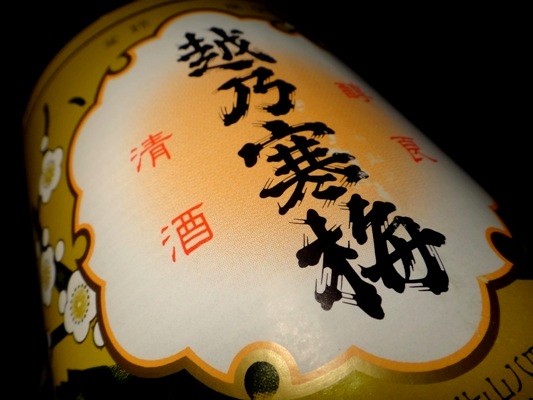 越乃寒梅
清酒